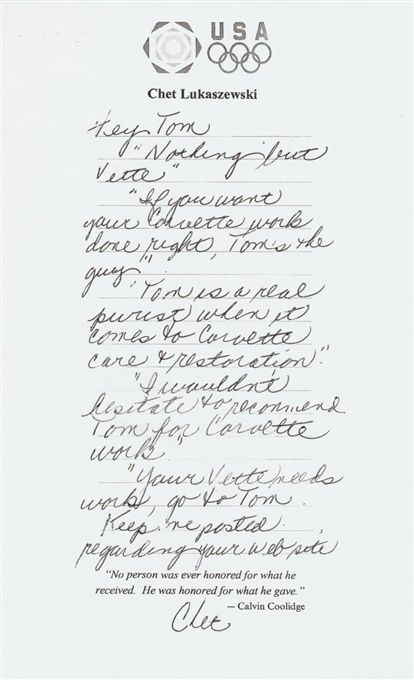 USA
Chet Lukaszewski
Hey Tom
"Nothing but
Vette"
"If you want
your Corvette work
done right, Tom's the
guy"
"Tom is a real
purist when it
comes to Corvette
care & restoration."
"I wouldn't
hesitate to recommend
Tom for Corvette
work."
"Your Vette needs
work, go to Tom.
Keep me posted
regarding your web site
"No person was ever honored for what he
received. He was honored for what he gave."
— Calvin Coolidge
Chet